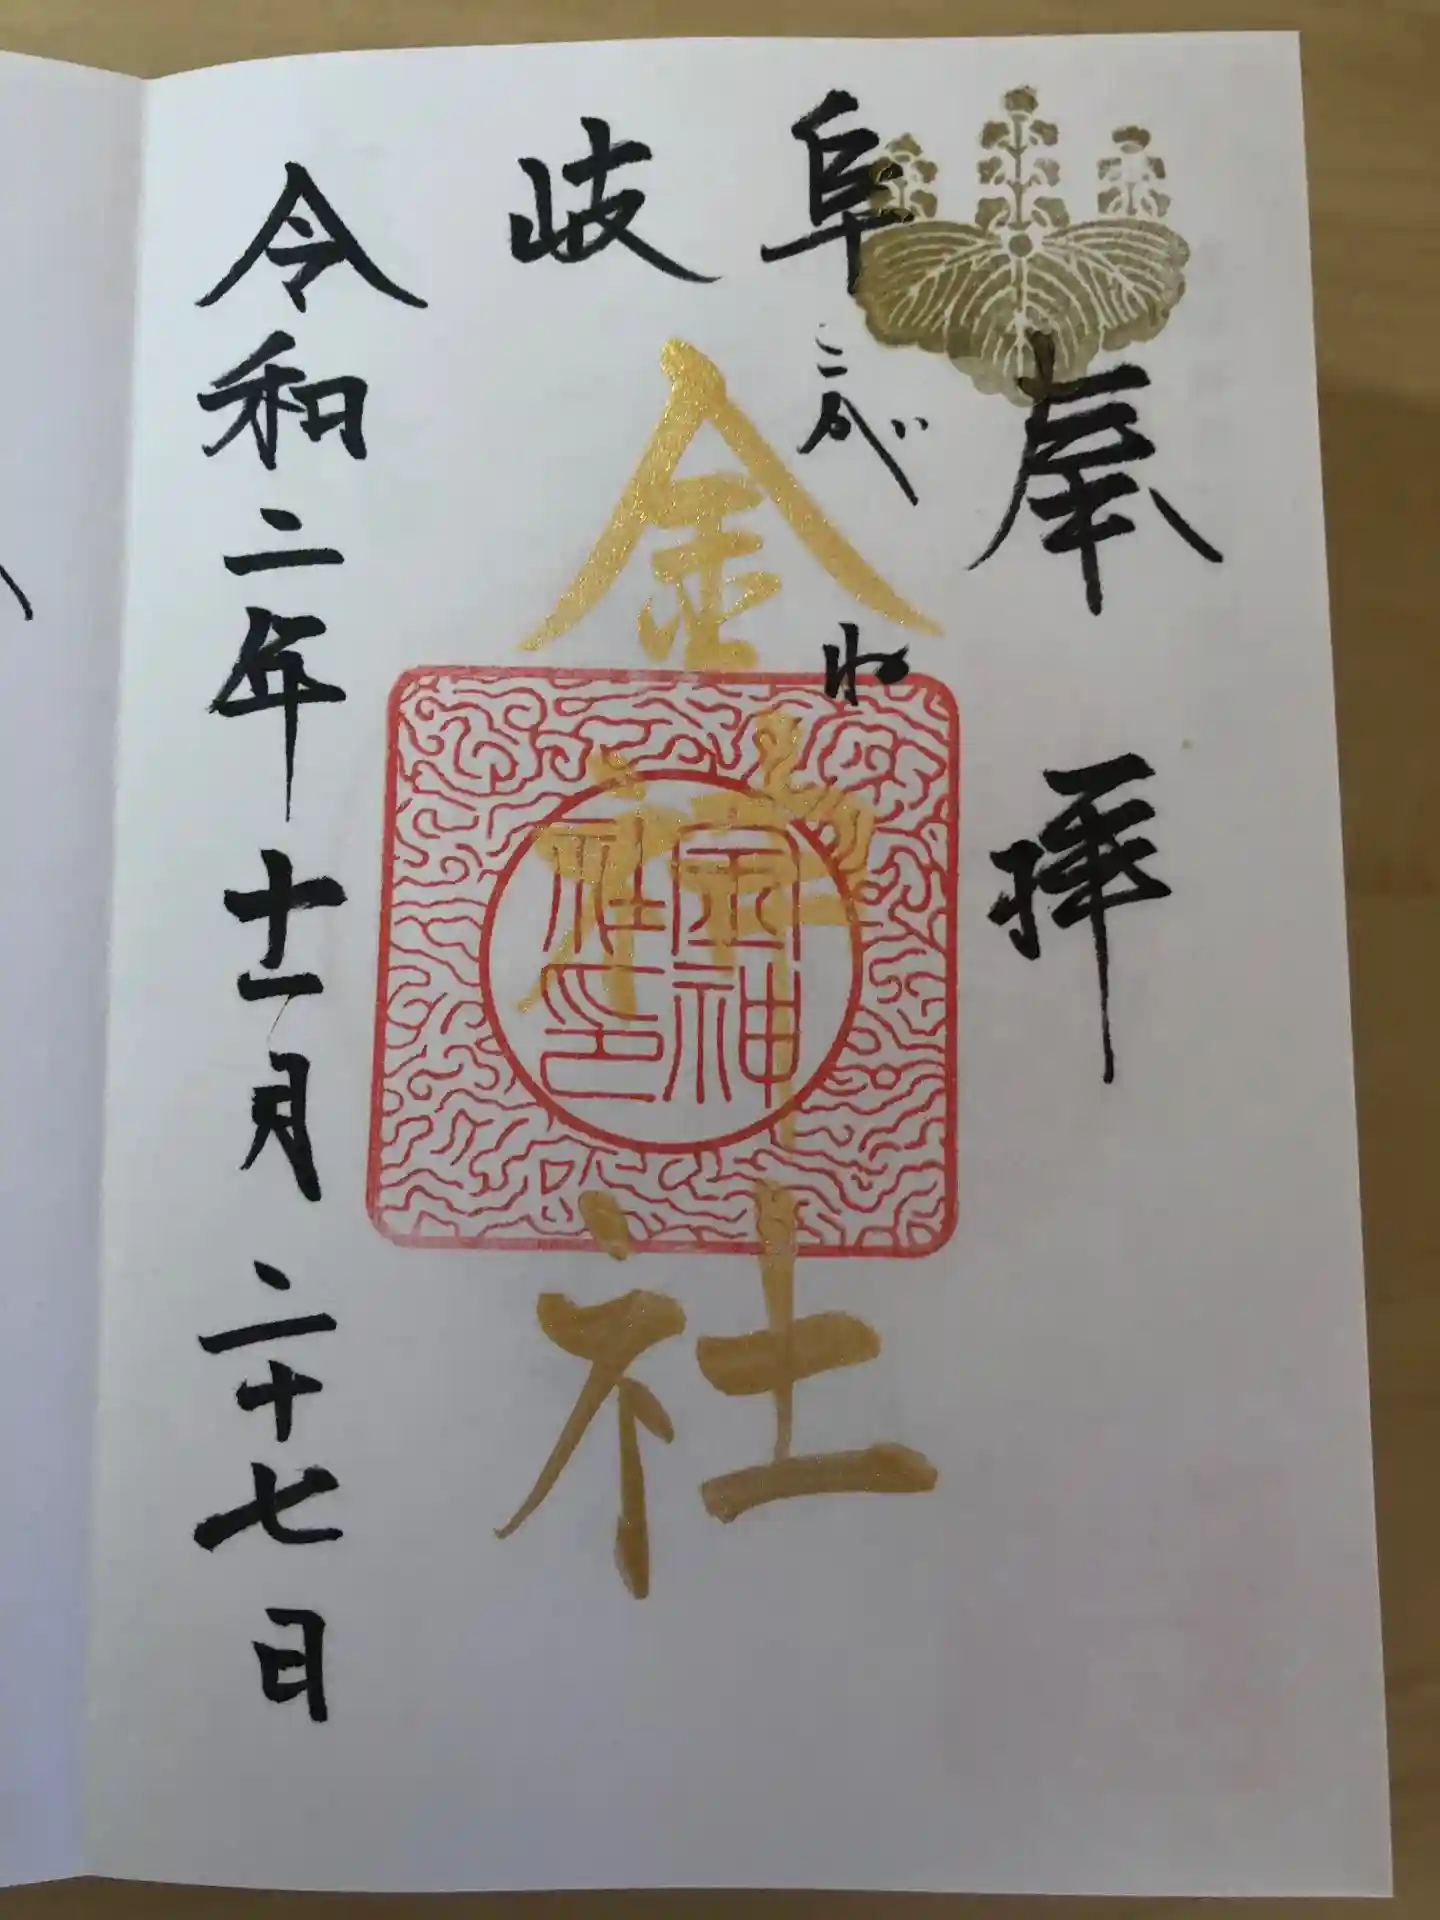 奉拝
岐阜
こがね
金神社
金神社印
令和二年十一月二十七日